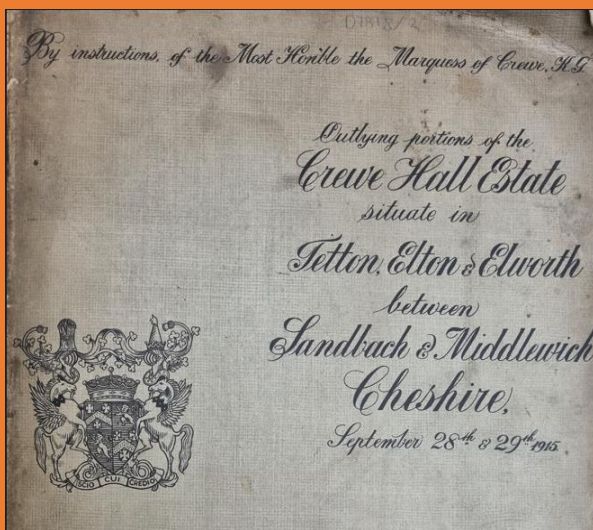 By instructions, of the Most Honble the Marquess of Crewe, K.G
Outlying portions of the
Crewe Hall Estate
situate in
Tetton, Elton & Elworth
between
Sandbach & Middlewich
Cheshire,
September 28th & 29th 1915.
SCIO CUI CREDIO